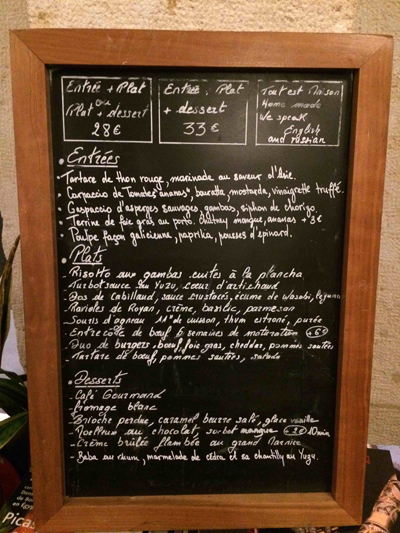 Entrée + Plat
ou
Plat + dessert
28€
Entrée + Plat
+ dessert
33€
Tout est Maison
Home made
We speak
English
and russian
• Entrées
Tartare de thon rouge, marinade au saveur d'Asie.
• Carpaccio de Tomates ananas, burratta, mostarda, vinaigrette truffé.
• Gaspaccio d'asperges sauvages, gambas, siphon de chorizo.
• Terrine de foie gras au porto. chutney mangue, ananas + 3€
Poulpe façon galicienne, paprika, pousses d'épinard.
• Plats
- Risotto aux gambas cuites à la plancha
- Turbot sauce au Yuzu, cœur d'artichaud
- Dos de Cabillaud, sauce crustacés, écume de wasabi, légumes
- Ravioles de Royan, crème, basilic, parmesan
- Souris d'agneau 11h de cuisson, thym citroné, purée
- Entrecôte de bœuf 6 semaines de maturation +6€
- Duo de burgers, bœuf, foie gras, cheddar, pommes sautées
- Tartare de bœuf, pommes sautées, salade
• Desserts
- Café Gourmand
- Fromage blanc
- Brioche perdue, caramel beurre salé, glace vanille
- Moelleux au chocolat, sorbet mangue +3€ 10 min
- Crème brûlée flambée au grand Marnier
- Baba au rhum, marmelade de cédra et sa chantilly au Yuzu.
Picas